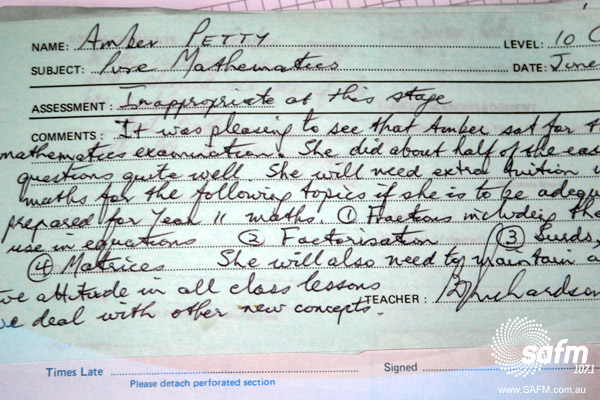 NAME: Amber PETTY LEVEL: 10
SUBJECT: Pure Mathematics DATE: June
ASSESSMENT: Inappropriate at this stage
COMMENTS: It was pleasing to see that Amber sat for
mathematics examination. She did about half of the
questions quite well. She will need extra tuition
maths for the following topics if she is to be
prepared for Year 11 maths. ① Fractions including
use in equations ② Factorisation ③ Surds,
④ Matrices She will also need to maintain a
attitude in all class lessons
deal with other new concepts.
TEACHER: Richardson
Times Late Signed
Please detach perforated section
safm
107.1
www.SAFM.com.au